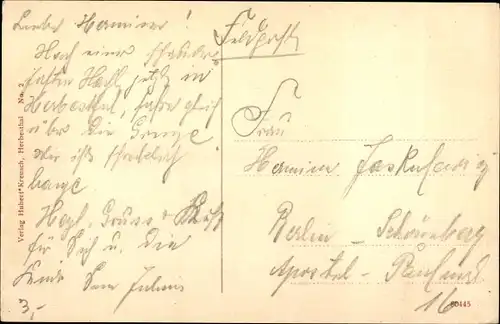 Liebe Hermine!
Nach einer schauder-
haften Nacht jetzt in
Herbesthal, fahre gleich
über die Grenze
mir ists schrecklich
bange.
Herzl. Gruss + Kuss
für Dich u. die
Kinder Dein Julius
3,-
Feldpost
Frau
Hermine
Berlin - Schöneberg
Apostel - Paulus
16
Verlag Hubert Kreusch, Herbesthal No. 2
60445